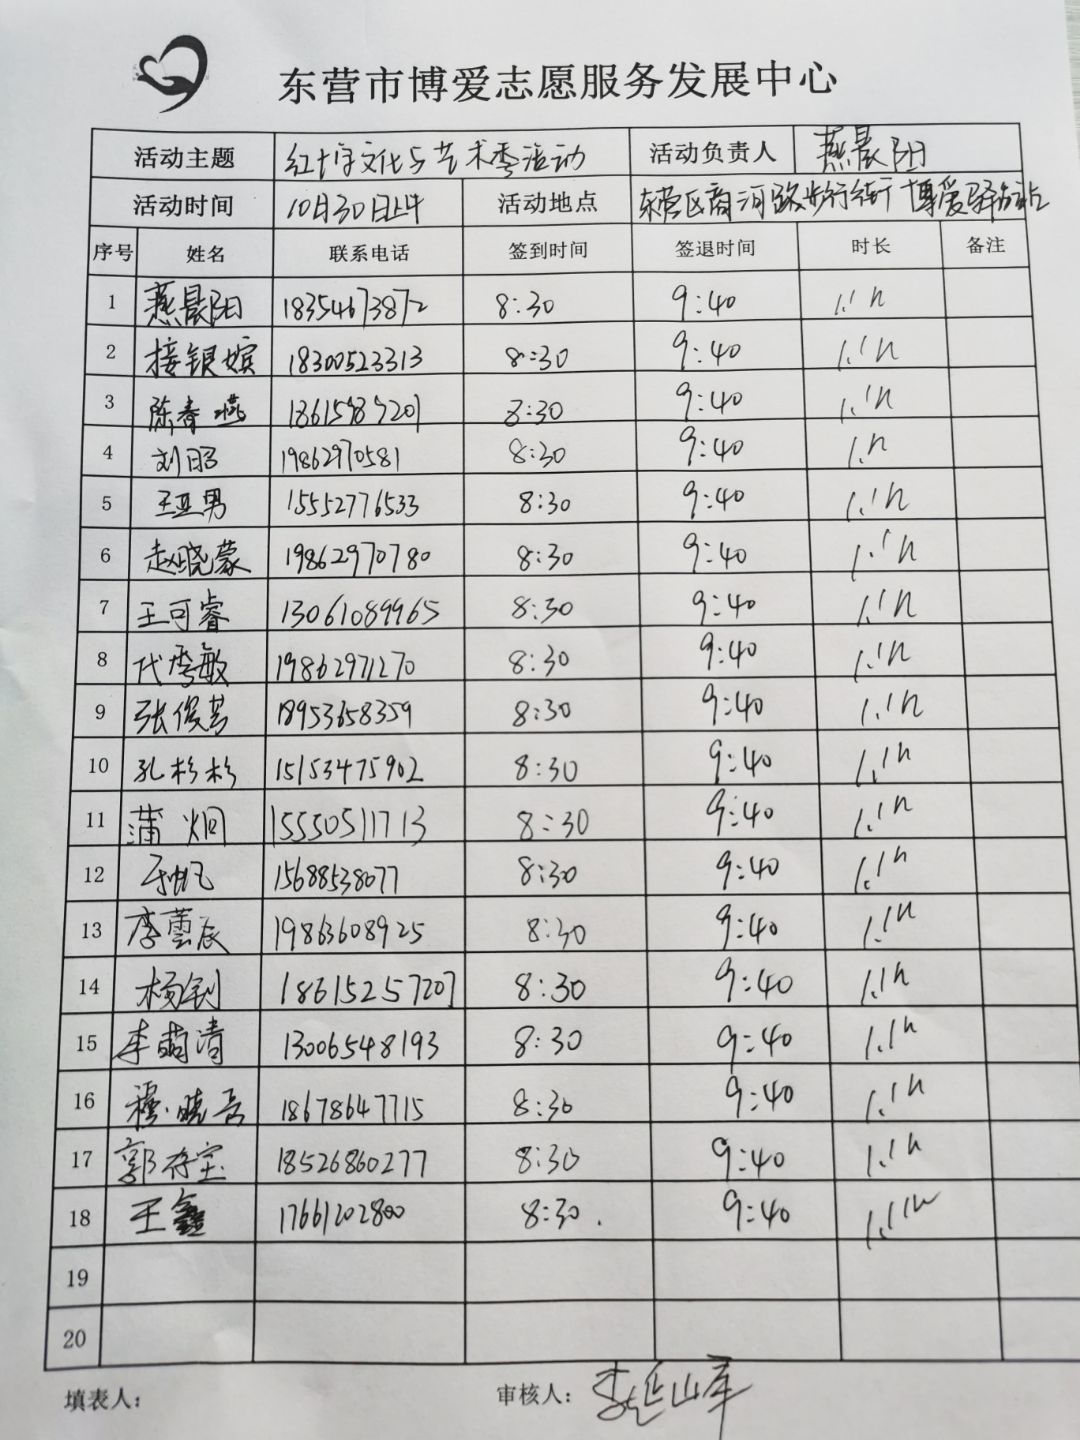 东营市博爱志愿服务发展中心
活动主题 红十字文化与艺术季活动 活动负责人 燕晨阳
活动时间 10月30日上午 活动地点 东营区商河路步行街 博爱驿站
序号 姓名 联系电话 签到时间 签退时间 时长 备注
1 燕晨阳 18354673872 8:30 9:40 1.1h
2 接银嫔 18300523313 8:30 9:40 1.1h
3 陈春燕 8:30 9:40 1.1h
4 刘昭 19862970581 8:30 9:40 1.h
5 王亚男 15552776533 8:30 9:40 1.1h
6 赵晓蒙 19862970780 8:30 9:40 1.1h
7 王可睿 13061089965 8:30 9:40 1.1h
8 代秀敏 19862971270 8:30 9:40 1.1h
9 张俊芳 18953658359 8:30 9:40 1.1h
10 孔杉杉 15153475902 8:30 9:40 1.1h
11 蒲炯 15550511713 8:30 9:40 1.1h
12 15688538077 8:30 9:40 1.1h
13 李蕓辰 19863608925 8:30 9:40 1.1h
14 杨钊 18615257207 8:30 9:40 1.1h
15 李萌清 13006548193 8:30 9:40 1.1h
16 穆晓云 18678647715 8:30 9:40 1.1h
17 郭存宝 18526860277 8:30 9:40 1.1h
18 王鑫 17661202800 8:30. 9:40 1.1h
19
20
填表人: 审核人: 李延山